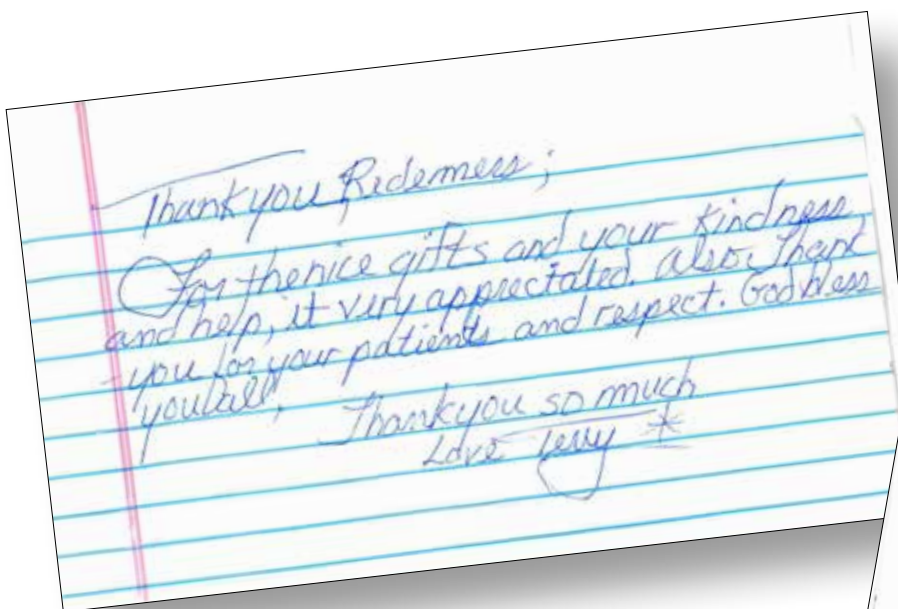 Thank you Redemers;
For the nice gifts and your Kindness
and help, it very appreciated. Also, Thank
you for your patients and respect. God bless
you all,
Thank you so much
Love Terry